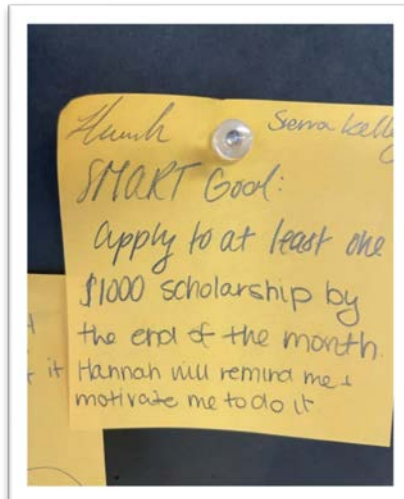 Sierra Kelly
SMART Goal:
apply to at least one
$1000 scholarship by
the end of the month.
Hannah will remind me &
motivate me to do it
it